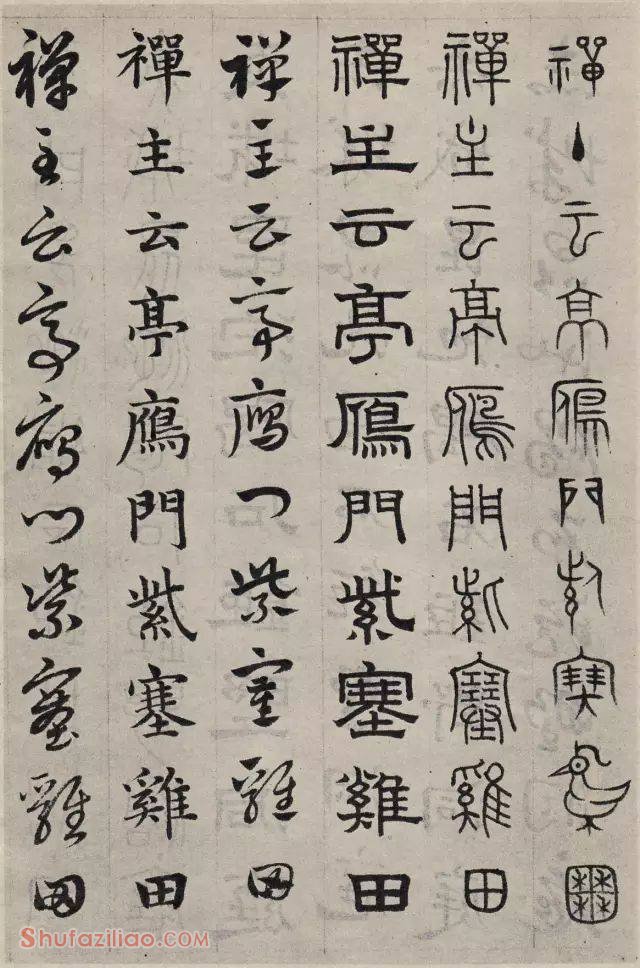 禪主云亭鴈門紫塞雞田
禪主云亭鴈門紫塞雞田
禪主云亭鴈門紫塞雞田
禪主云亭鴈門紫塞雞田
禪主云亭鴈門紫塞雞田
禪主云亭鴈門紫塞雞田
Shufaziliao.COM